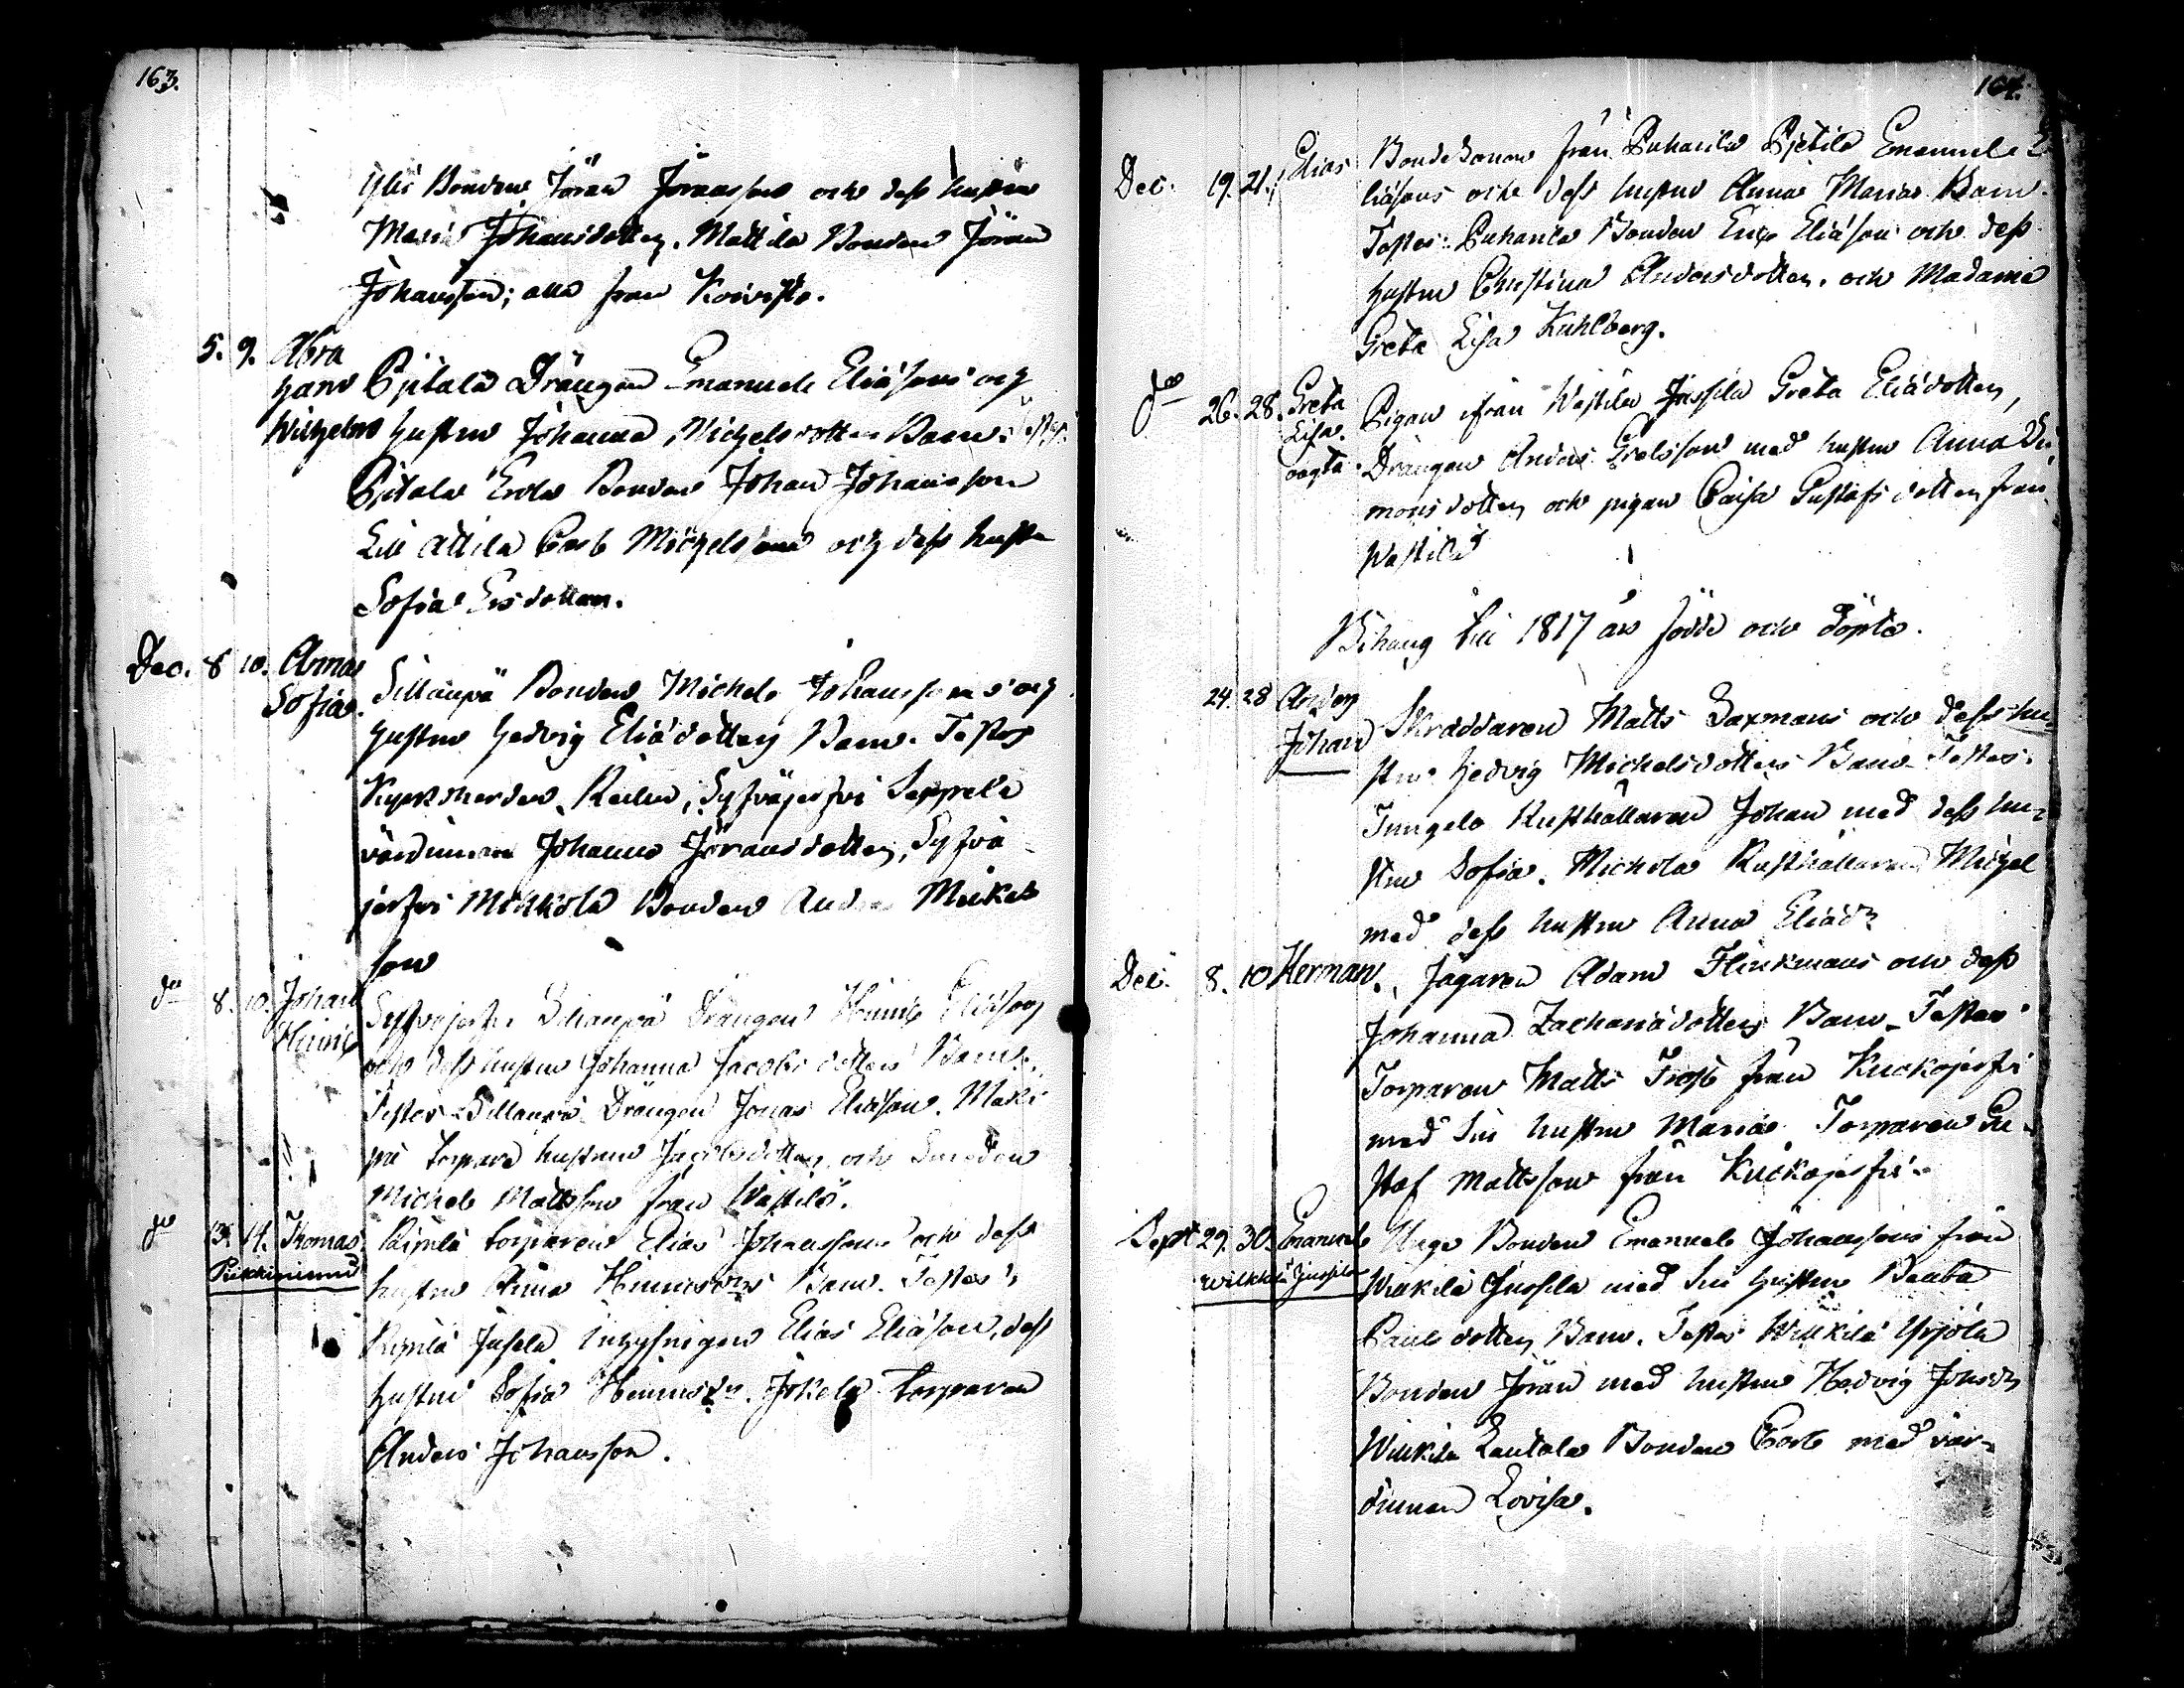 163.
Ylis Bonden Jöran Jöransson och dess hustru
Maria Johansdotter. Mattila Bonden Jöran
Johansson; alla från Koivisto.
5. 9. Abra
ham Pjetala Drängen Emanuel Eliæsons och
Wilhelm hustru Johanna Michelsdotters Barn. Test:
Pjetala Erola Bonden Johan Johansson
Lill Attila Carl Michelsson och dess hustru
Sofia Ersdotter.
Dec. 8 10. Anna
Sofia. Sillanpä Bonden Michel Johanssons och
hustru Hedvig Eliædotters Barn. Testes
Kyrkoherden Reilin, Syfväjerfvi Seppele
värdinnan Johanna Jöransdotter, Syfvä
jerfvi Mickola Bonden Anders Mickels
son
do 8. 10. Johan
Henric Syfväjerfvi Sillanpä Drängen Henric Eliæsons
och dess hustru Johanna Jacobsdotters Barn.
Testes Sillanpä Drängen Jonas Eliæson. Maki
pä torpare hustrun Jacobsdotter och Smeden
Michel Mattsson från Wastila.
do 13. 14. Thomas Torparen Elias Johanssons och dess
Pikkiniemi
hustru Anna Henricsdrs Barn. Testes:
Jusela Inhysingen Elias Eliæson, dess
hustru Sofia Henricsdr. Jokela torparen
Anders Johansson.
164.
Dec. 19. 21. Elias Bondesonen från Puhanila Pjetila Emanuel E
liæsons och dess hustru Anna Marias Barn.
Testes: Puhanila Bonden Eric Eliæson och dess
hustru Christina Andersdotter. och Madame
Greta Lisa Kuhlberg.
do 26. 28. Greta
Lisa.
oägta. Pigan ifrån Wastila Jussila Greta Eliædotter,
Drängen Anders Grelsson med hustru Anna Si
monsdotter och pigan Caisa Gustafsdotter från
Wastila
Bihang till 1817 års födde och döpte.
24. 28 Anders
Johan Skräddaren Matts Saxmans och dess hu=
stru Hedvig Michelsdotters Barn Testes.
Tungelo Rusthållaren Johan med dess hu=
stru Sofia. Michola Rusthållaren Michel
med dess hustru Anna Eliædr
Dec. 8. 10 Herman. Jägaren Adam Flinkmans och dess
Johanna Zachariædotters Barn. Testes
Torparen Matts Frost från Kuckojerfvi
med sin hustru Maria. Torparen Gu
staf Mattsson från Kuckojerfvi.
Sept 29. 30. Emanuel Unge Bonden Emanuel Johanssons från
Wilkkilä Jussila
Wilkilä Jussila med sin hustru Beata
Paulsdotters Barn. Testes Wilkilä Yrjölä
Bonden Jöran med hustru Hedvig Johsdr
Wilkilä Rautala Bonden Carl med vär=
dinnan Lovisa.